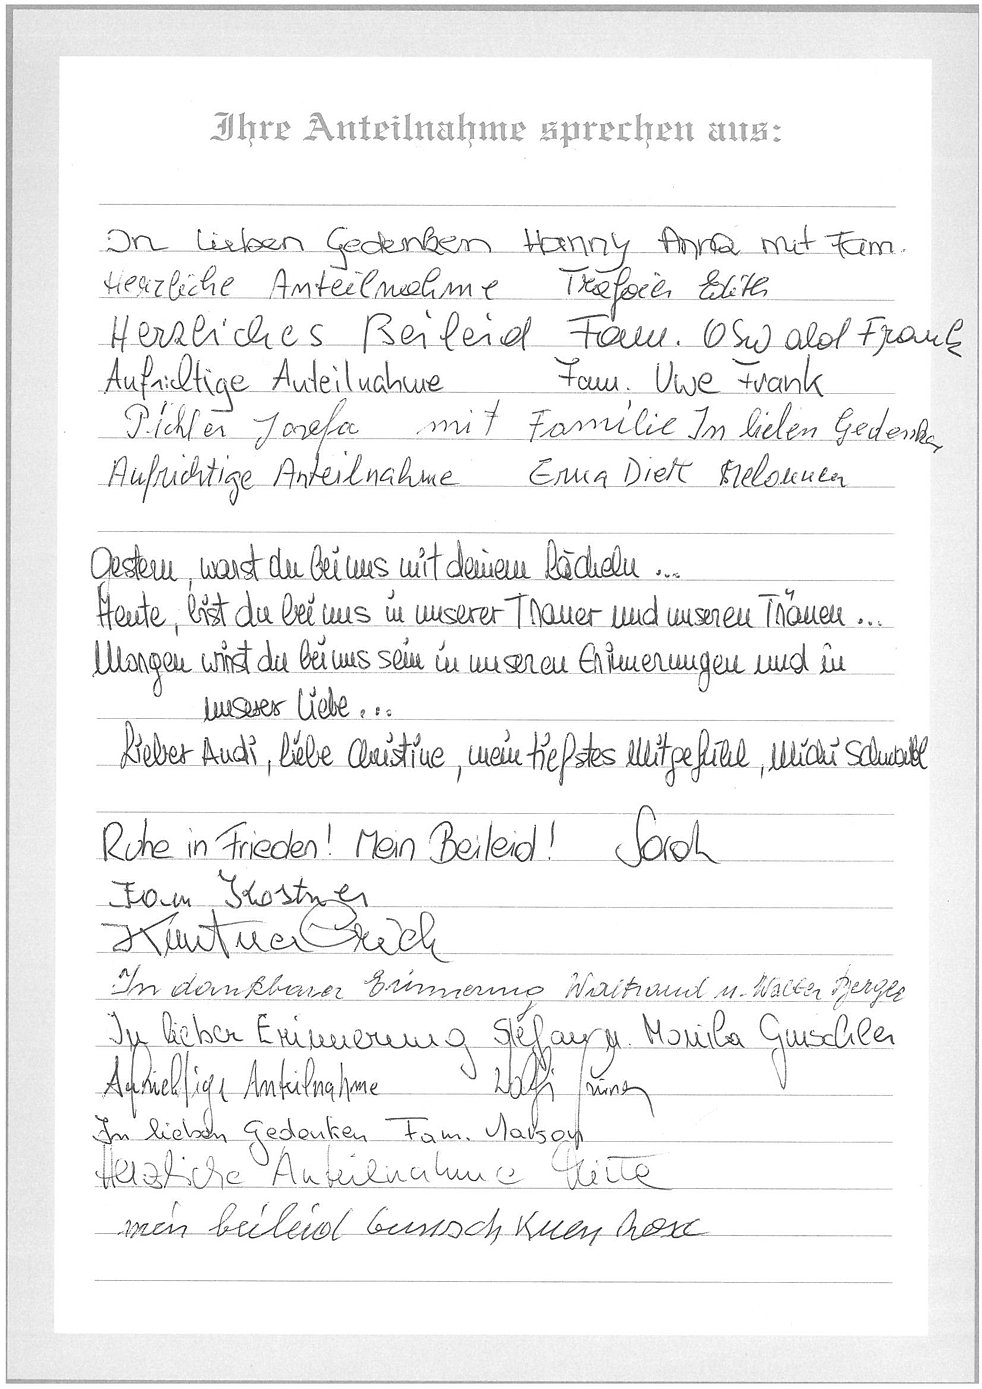 Ihre Anteilnahme sprechen aus:
In lieben Gedenken Hanny Anna mit Fam.
Herzliche Anteilnahme Trafoier Edith
Herzliches Beileid Fam. Oswald Frank
Aufrichtige Anteilnahme Fam. Uwe Frank
Pichler Josefa mit Familie In lieben Gedenken
Aufrichtige Anteilnahme Erna Dietl
Gestern, warst du bei uns mit deinem Lächeln ...
Heute, bist du bei uns in unserer Trauer und unseren Tränen ...
Morgen wirst du bei uns sein in unseren Erinnerungen und in
unserer Liebe ...
Lieber Andi, liebe Christine, mein tiefstes Mitgefühl, Michi
Ruhe in Frieden! Mein Beileid! Sarah
Fam Kostner
Kuntner Erich
In dankbarer Erinnerung Waltraud u. Walter Berger
In lieber Erinnerung Stefan u. Monika Gurschler
Aufrichtige Anteilnahme Wolfi
In lieben Gedenken Fam.
Herzliche Anteilnahme
mein beileid